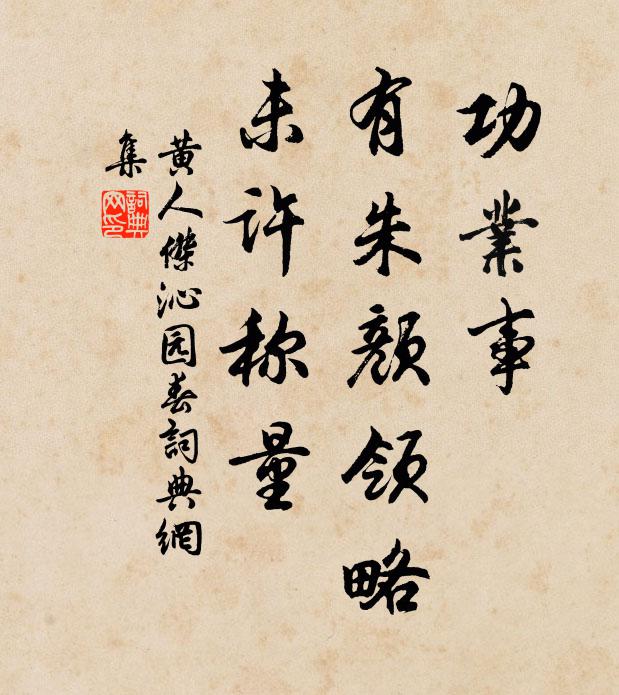 功業事
有朱顏領略
未許称量
黄人傑沁园春詞典網
集
詞典
网印